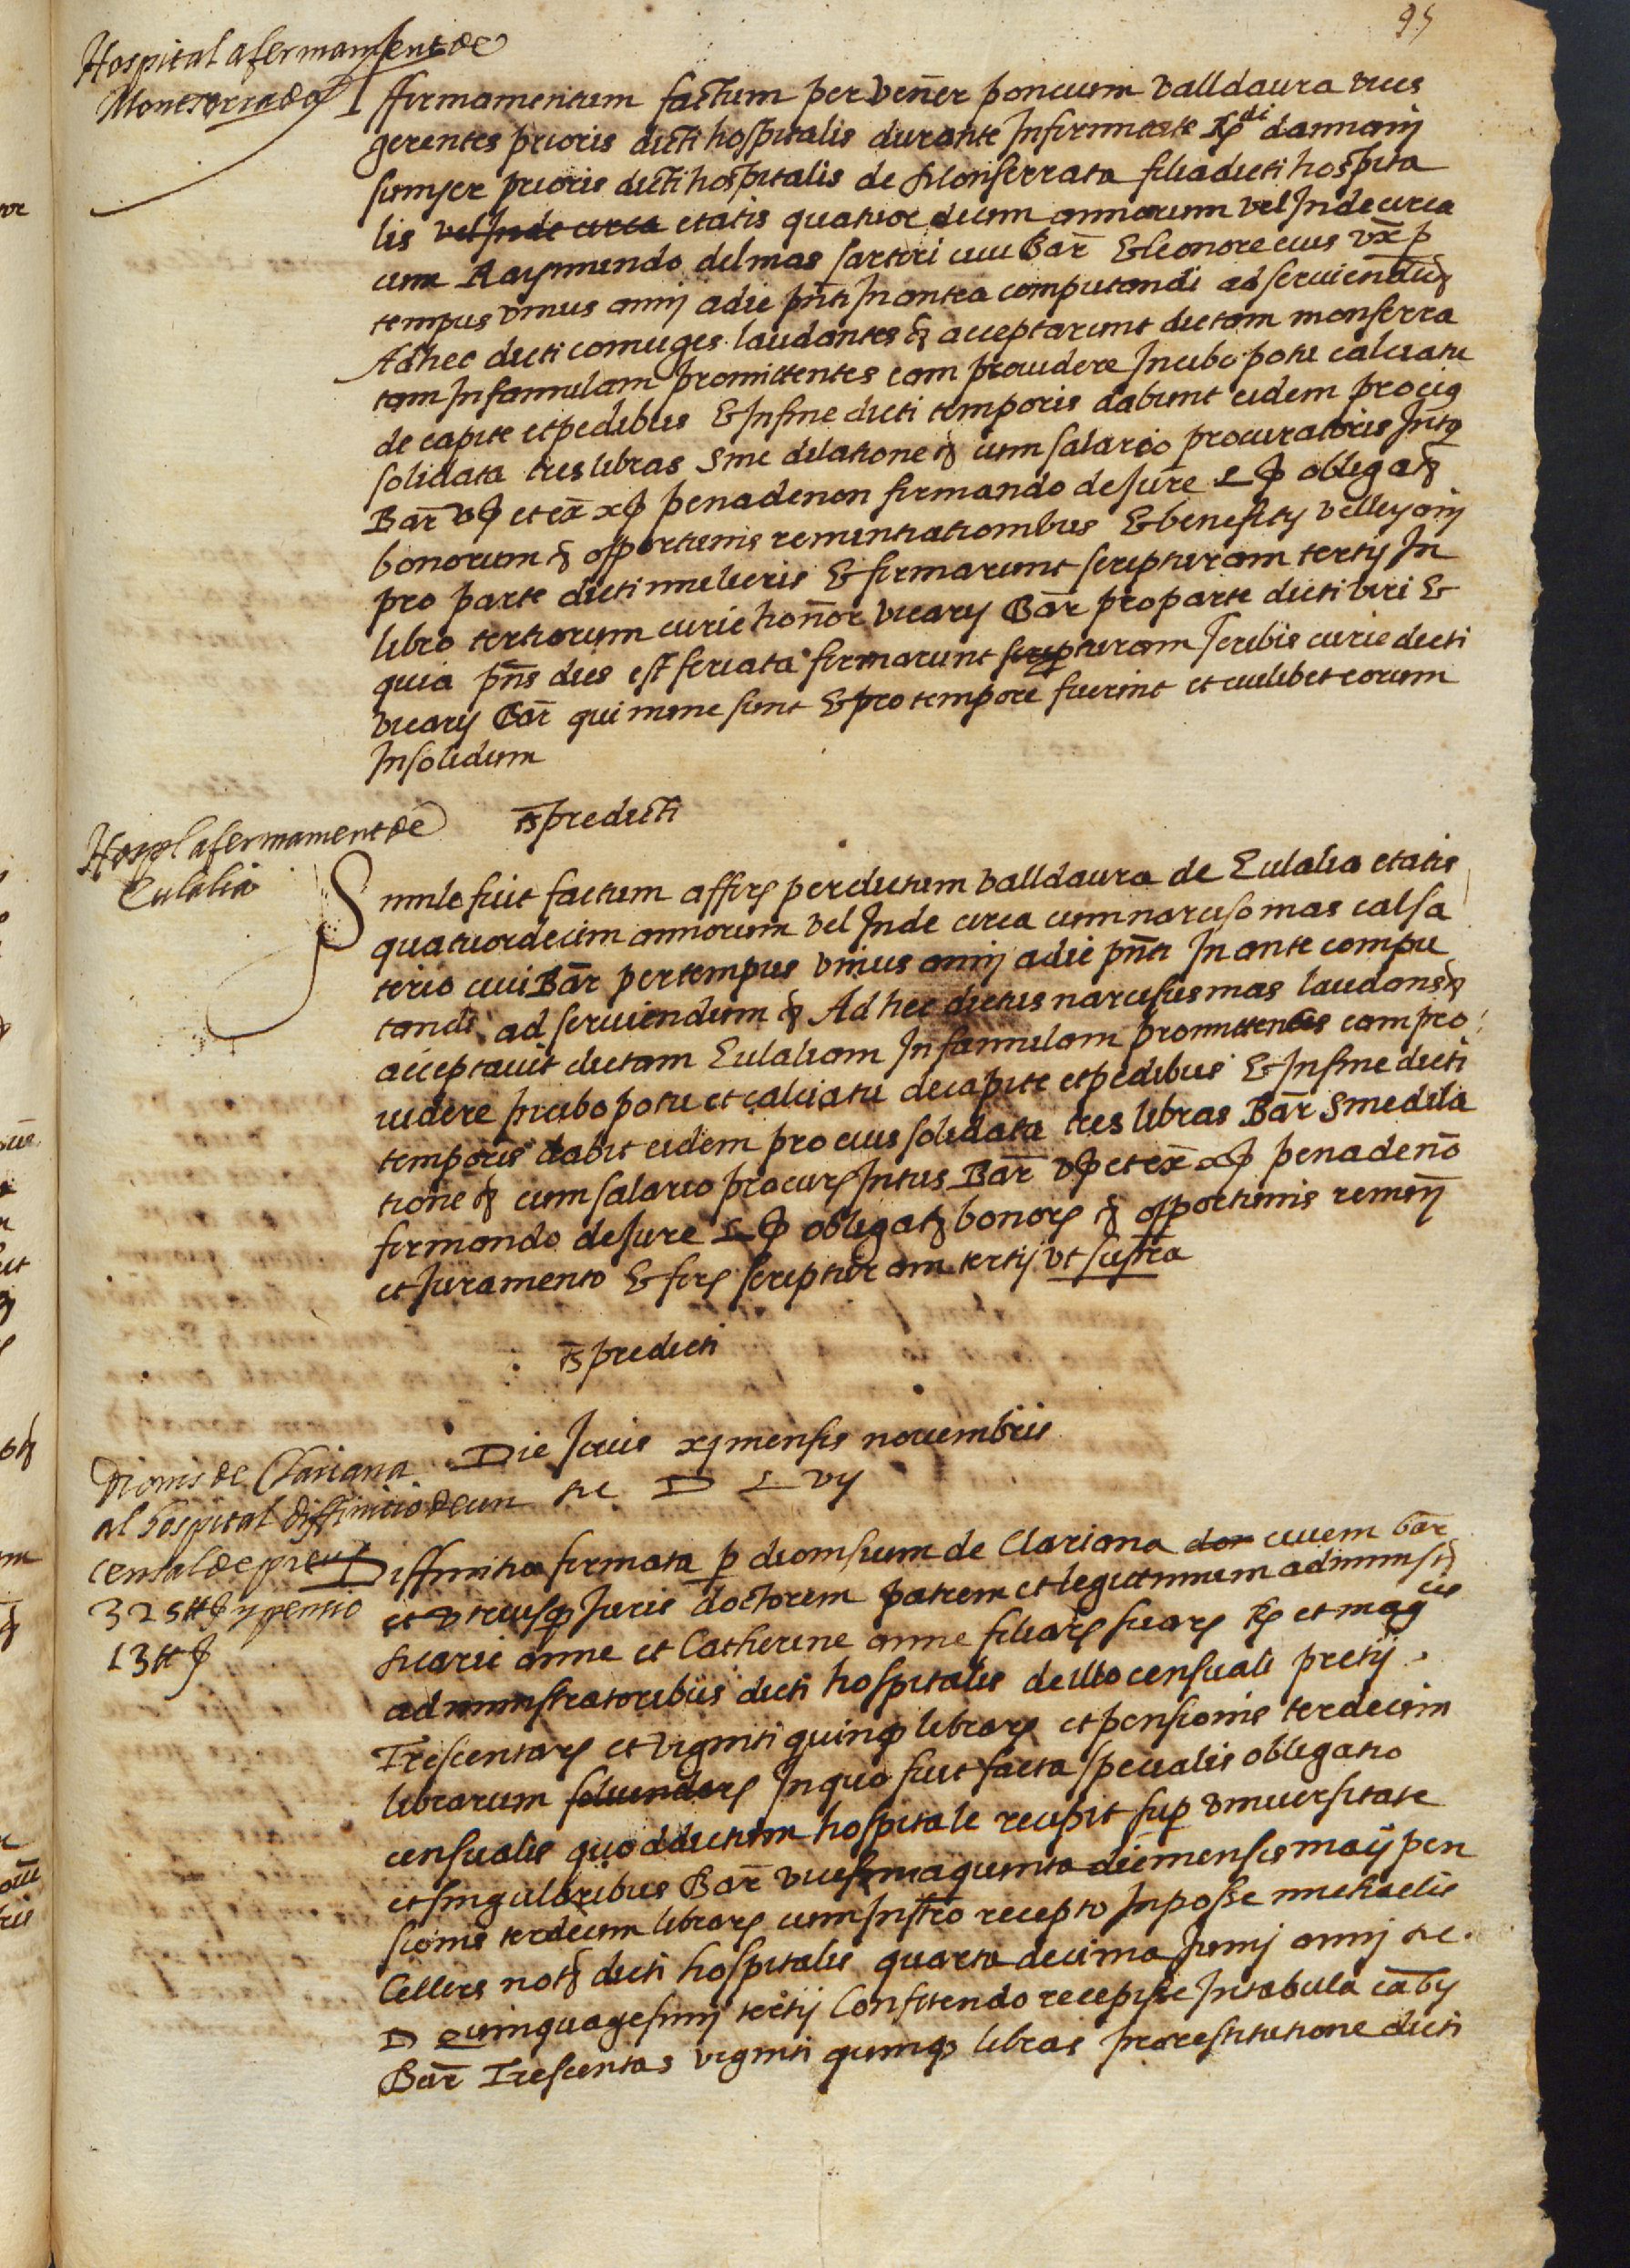 95
Hospital afermament de
Montserrada
Affirmamentum factum per vener poncium Valldaura vices
gerentes prioris dicti hospitalis durante Infirmitate Rdi damiani
sunyer prioris dicti hospitalis de Monserrata filia dicti hospita
lis vel Inde circa etatis quatuor decim annorum vel Inde circa
cum Raymundo delmas sartori civi Bar & Eleonore eius ux p
tempus unius anni a die pnti In antea computandi ad serviendu &
Ad hec dicti coniuges laudantes & acceptarunt dictam monserra
tam In famulam promittentes eam providere In cibo potu calciatu
de capite et pedibus & In fine dicti temporis dabunt eidem pro eius
solidata tres libras Sine dilatione & cum salario procuratoris Intus
Bar v β et ex x β pena de non firmando de Jure L β obligat
bonorum & opportunis renuntiationibus & beneficii velleyani
pro parte dicti mulieris & firmarunt scripturam tertii In
libro tertiorum curie honor vicarii Bar pro parte dicti viri &
quia pns dies est feriata firmarunt scripturam scribis curie dicti
vicarii Bar qui nunc sunt & pro tempore fuerint et cuilibet eorum
Insolidum
ts predicti
Hospl afermament de
Eulalia
Simile fuit factum affir per dictum Valldaura de Eulalia etatis
quatuordecim annorum vel Inde circa cum narciso mas calsa
terio civi Bar per tempus unius anni a die pnti In ante compu
tandi ad serviendum & Ad hec dictus narcisus mas laudans &
acceptavit dictam Eulaliam In famulam promittentes eam pro
videre In cibo potu et calciatu de capite et pedibus & In fine dicti
temporis dabit eidem pro eius solidata tres libras Bar Sine dila
tione & cum salario procur Intus Bar v β et ex x β pena de no
firmando de Jure L β obligat bonor & opportunis renun
et Juramento & fir scripturam tertii ut supra
ts predicti
Die Jovis xj mensis novembris
ne D L vij
Dionis de Clariana
al hospital diffinicio de un
censal de preu
325 ₶ y pencio
13 ₶ β
Diffinitio firmata p dionisium de Clariana dor civem bar
et utriusq Juris doctorem patrem et legittimum administ
tricarie anne et Catherine anne filiar suar R et magcis
administratoribus dicti hospitalis de illo censuali pretii
Trescentar et viginti quinq librar et pensionis terdecim
librarum solvendar In quo fuit facta specialis obligatio
censualis quod dictum hospitale recipit sup universitate
et singularibus Bar vicesima quinta die mensis maij pen
sionis terdecim librar cum Instro recepto In posse michaelis
Cellers not dicti hospitalis quarta decima Junij anni ne
D quinquagesimi tertii Confitendo recepisse In tabula cabii
Bar Trescentas viginti quinq libras pro restitutione dicti